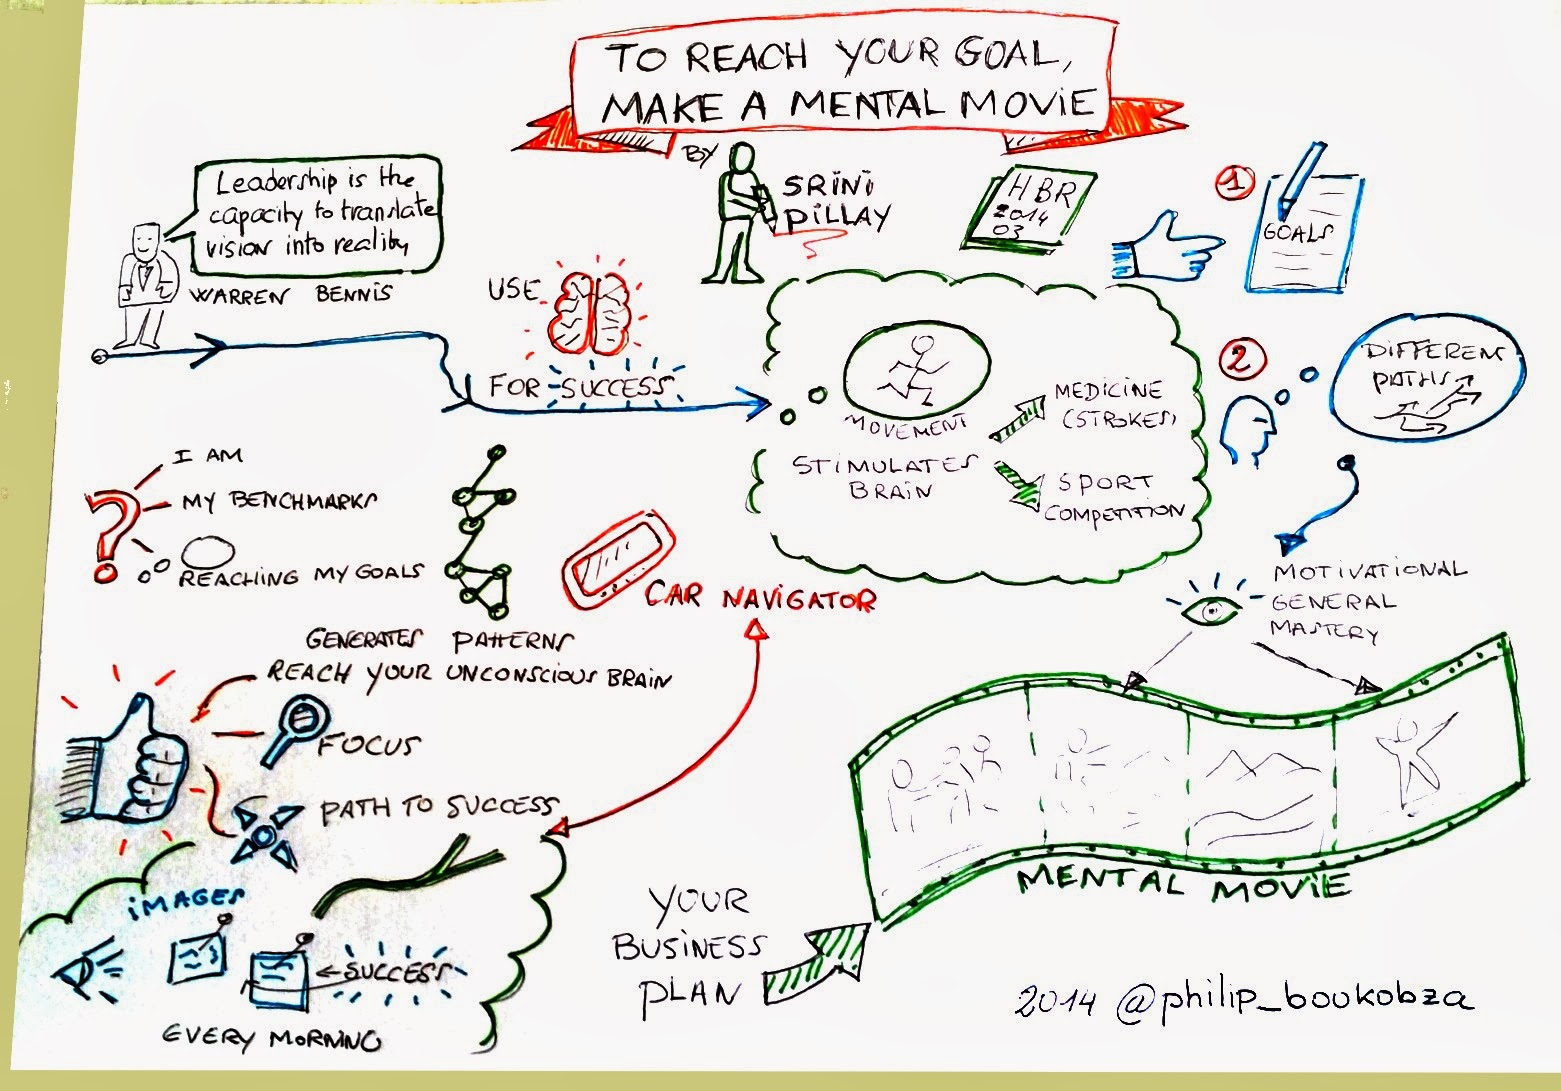 TO REACH YOUR GOAL,
MAKE A MENTAL MOVIE
BY
SRINI
PILLAY
HBR
2014
03
1
GOALS
Leadership is the
capacity to translate
vision into reality
WARREN BENNIS
USE
FOR SUCCESS
MOVEMENT
STIMULATES
BRAIN
MEDICINE
(STROKES)
SPORT
COMPETITION
2
DIFFERENT
PATHS
MOTIVATIONAL
GENERAL
MASTERY
I AM
MY BENCHMARKS
REACHING MY GOALS
CAR NAVIGATOR
GENERATES PATTERNS
REACH YOUR UNCONSCIOUS BRAIN
FOCUS
PATH TO SUCCESS
IMAGES
SUCCESS
EVERY MORNING
YOUR
BUSINESS
PLAN
MENTAL MOVIE
2014 @philip_boukobza